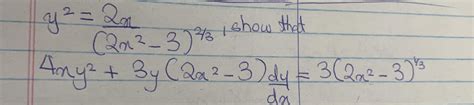 y² = 2x / (2x² - 3)^(2/3) , show that
4xy² + 3y(2x² - 3) dy/dx = 3(2x² - 3)^(1/3)